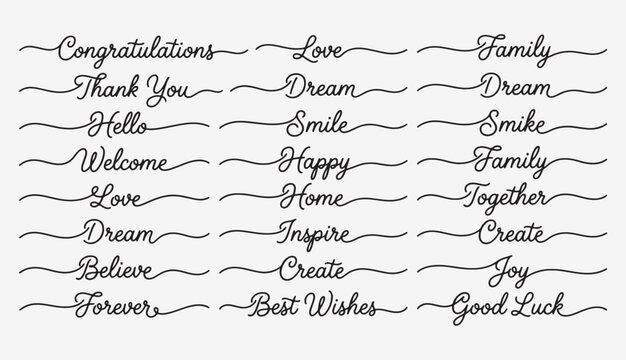 Congratulations Love Family
Thank You Dream Dream
Hello Smile Smike
Welcome Happy Family
Love Home Together
Dream Inspire Create
Believe Create Joy
Forever Best Wishes Good Luck